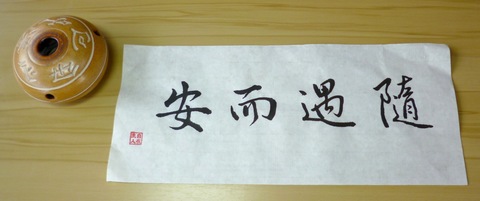 隨遇而安